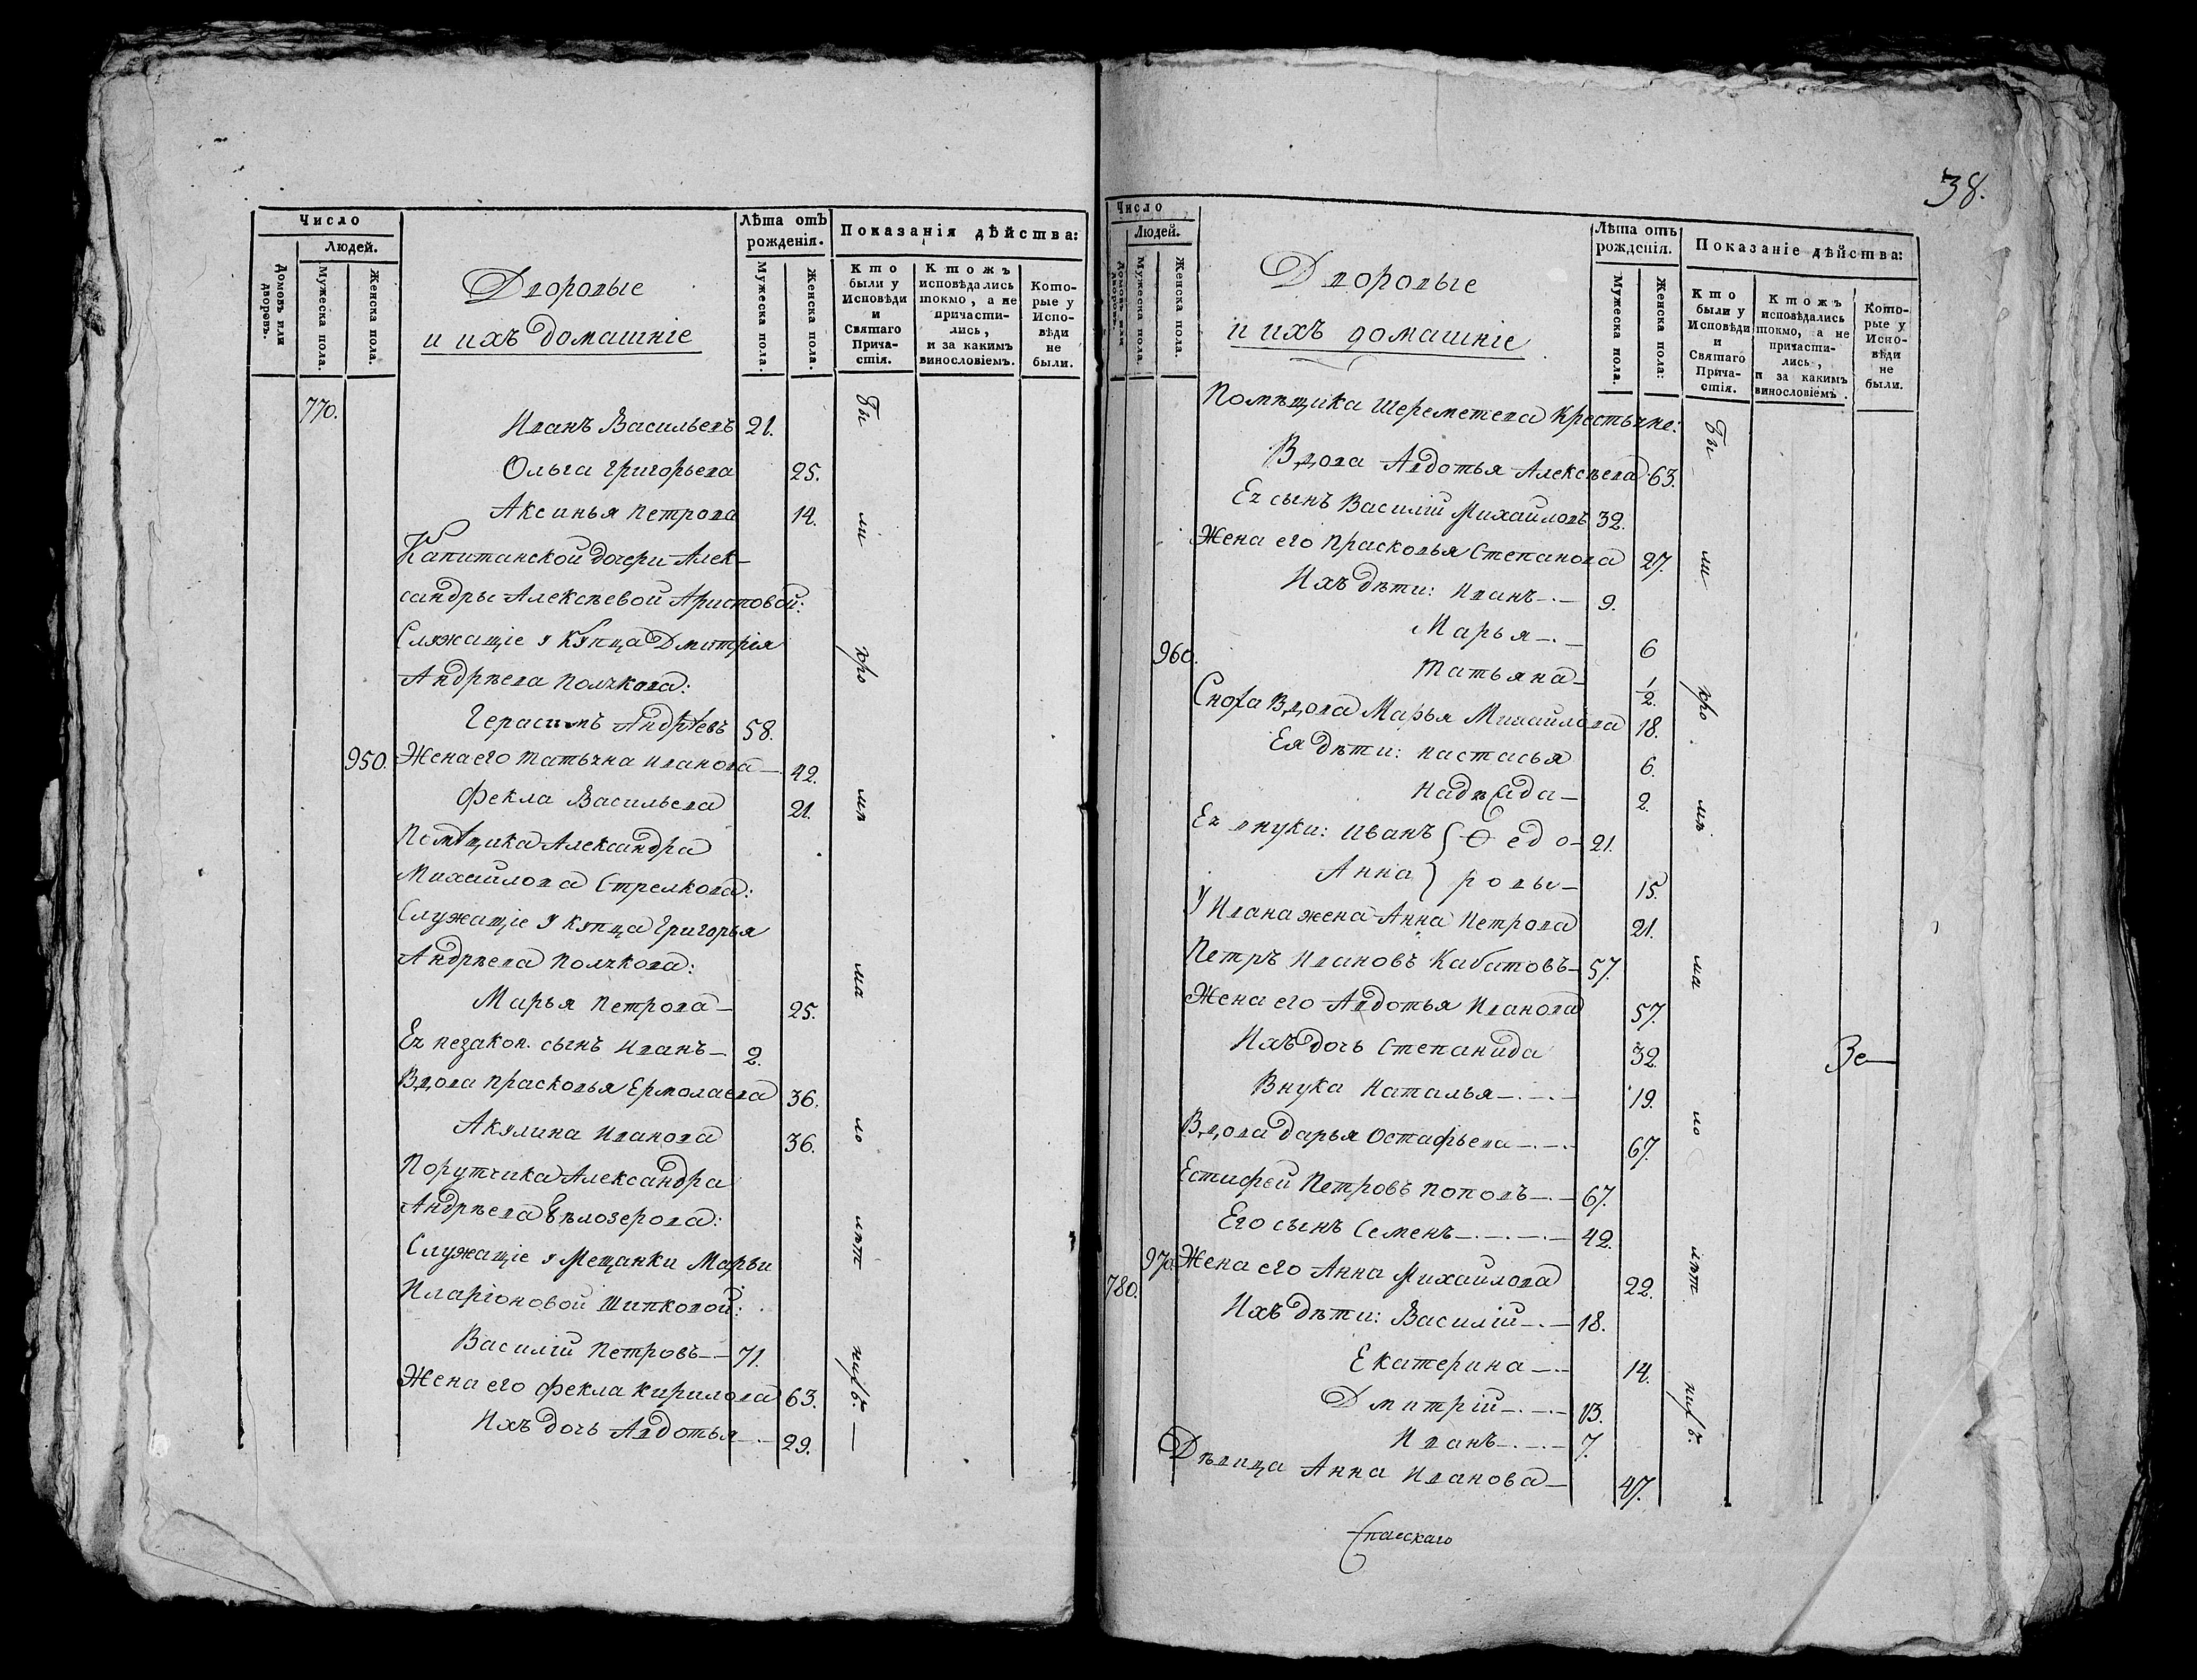 Число
Людей.
Домовъ или дворовъ.
Мужеска пола.
Женска пола.
Дворовые
и ихъ домашніе
Лѣта отъ
рожденія.
Мужеска пола.
Женска пола.
Показанія дѣйства:
Кто
были у
Исповѣди
и
Святаго
Прича-
стія.
Ктожъ
исповѣдались
токмо, а не
причасти-
лись,
и за какимъ
винословіемъ.
Кото-
рые у
Испо-
вѣди
не
были.
770. Иванъ Васильевъ 21.
Ольга Григорьева 25.
Аксинья Петрова 14.
Капитанской дочери Алек-
сандры Алексѣевой Аристовой:
Служащіе у купца Дмитрія
Андрѣева Полякова:
Герасимъ Андрѣевъ 58.
950. Жена его Татьяна Иванова — 42.
Фекла Васильева 21.
Помѣщика Александра
Михайлова Стрелкова:
Служащіе у купца Григорья
Андрѣева Полякова:
Марья Петрова — 25.
Ея незакон. сынъ Иванъ — 2.
Вдова Прасковья Ермолаева 36.
Акулина Иванова 36.
Порутчика Александра
Андрѣева Бѣлозерова:
Служащіе у Мещанки Марьи
Иларіоновой Шипковой:
Василій Петровъ — 71.
Жена его Фекла Кирилова 63.
Ихъ дочь Авдотья — 29.
Бы
ли
про
мѣ
ма
ло
лѣт
них
38.
Число
Людей.
Домовъ или дворовъ.
Мужеска пола.
Женска пола.
Дворовые
и ихъ домашніе
Лѣта отъ
рожденія.
Мужеска пола.
Женска пола:
Показаніе дѣйства:
Кто
были у
Исповѣди
и
Святаго
Прича-
стія.
Ктожъ
исповѣдались
токмо, а не
причасти-
лись,
и за какимъ
винословіемъ.
Кото-
рые у
Испо-
вѣди
не
были.
Помѣщика Шереметева Крестьяне:
Вдова Авдотья Алексѣева 63.
Ея сынъ Василій Михайловъ 32.
Жена его Прасковья Степанова 27.
Ихъ дѣти: Иванъ — 9.
Марья — 6
960. Татьяна — 1/2.
Сноха Вдова Марья Михайлова 18.
Ея дѣти: Настасья 6.
Надѣжда — 2.
Ея внуки: Иванъ } Ѳедо- 21.
Анна } ровы — 15.
У Ивана жена Анна Петрова 21.
Петръ Ивановъ Кабатовъ — 57.
Жена его Авдотья Иванова 57.
Ихъ дочь Степанида 32. Зе—
Внука Наталья — 19.
Вдова Дарья Остафьева — 67.
Естифей Петровъ Поповъ — 67.
Его сынъ Семенъ — 42.
970. Жена его Анна Михайлова 22.
780. Ихъ дѣти: Василій — 18.
Екатерина — 14.
Дмитрій — 13.
Иванъ — 7.
Дѣвица Анна Иванова — 47.
Бы
ли
про
мѣ
ма
ло
лѣт
них
Спасскаго